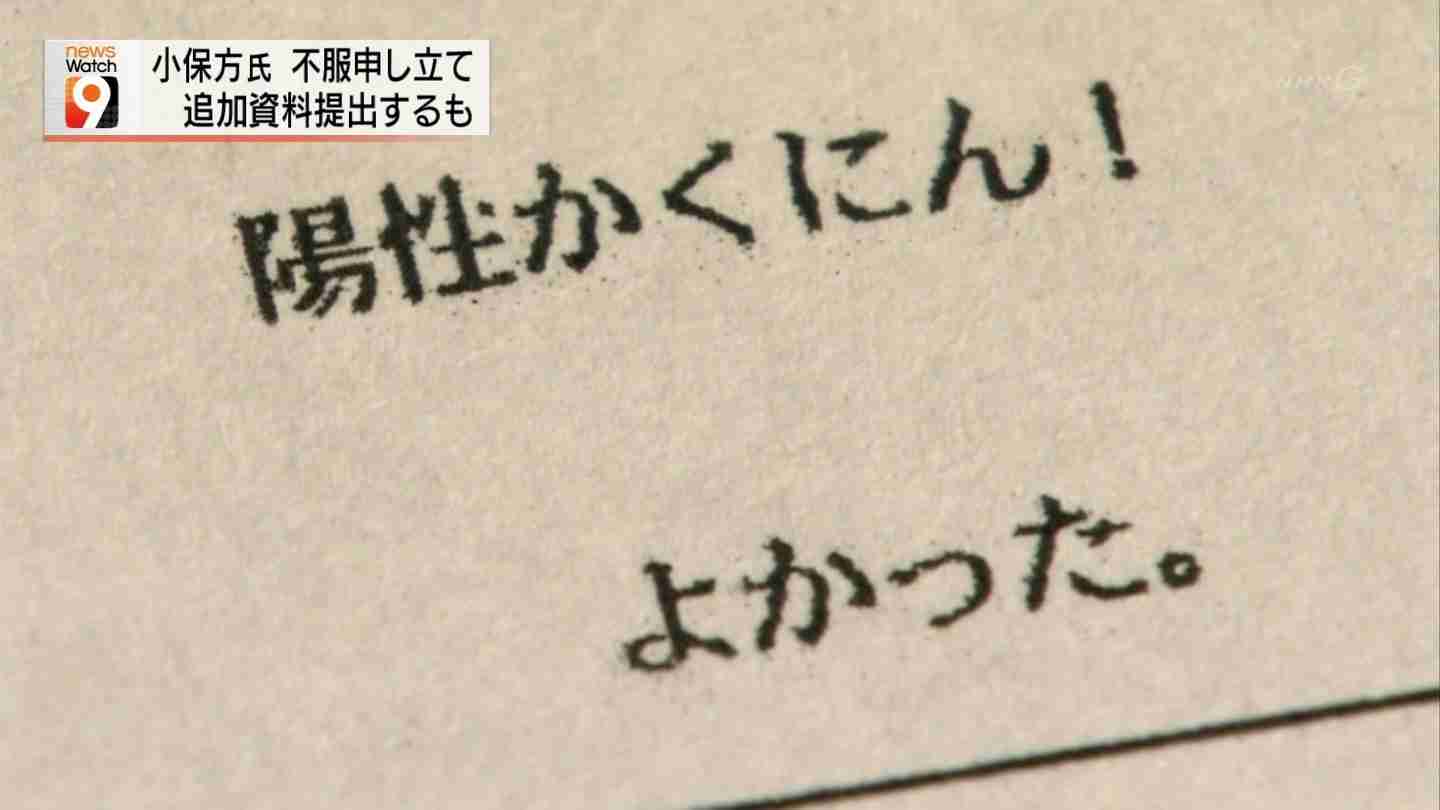 news
Watch
9
小保方氏 不服申し立て
追加資料提出するも
NHK G
陽性かくにん！
よかった。